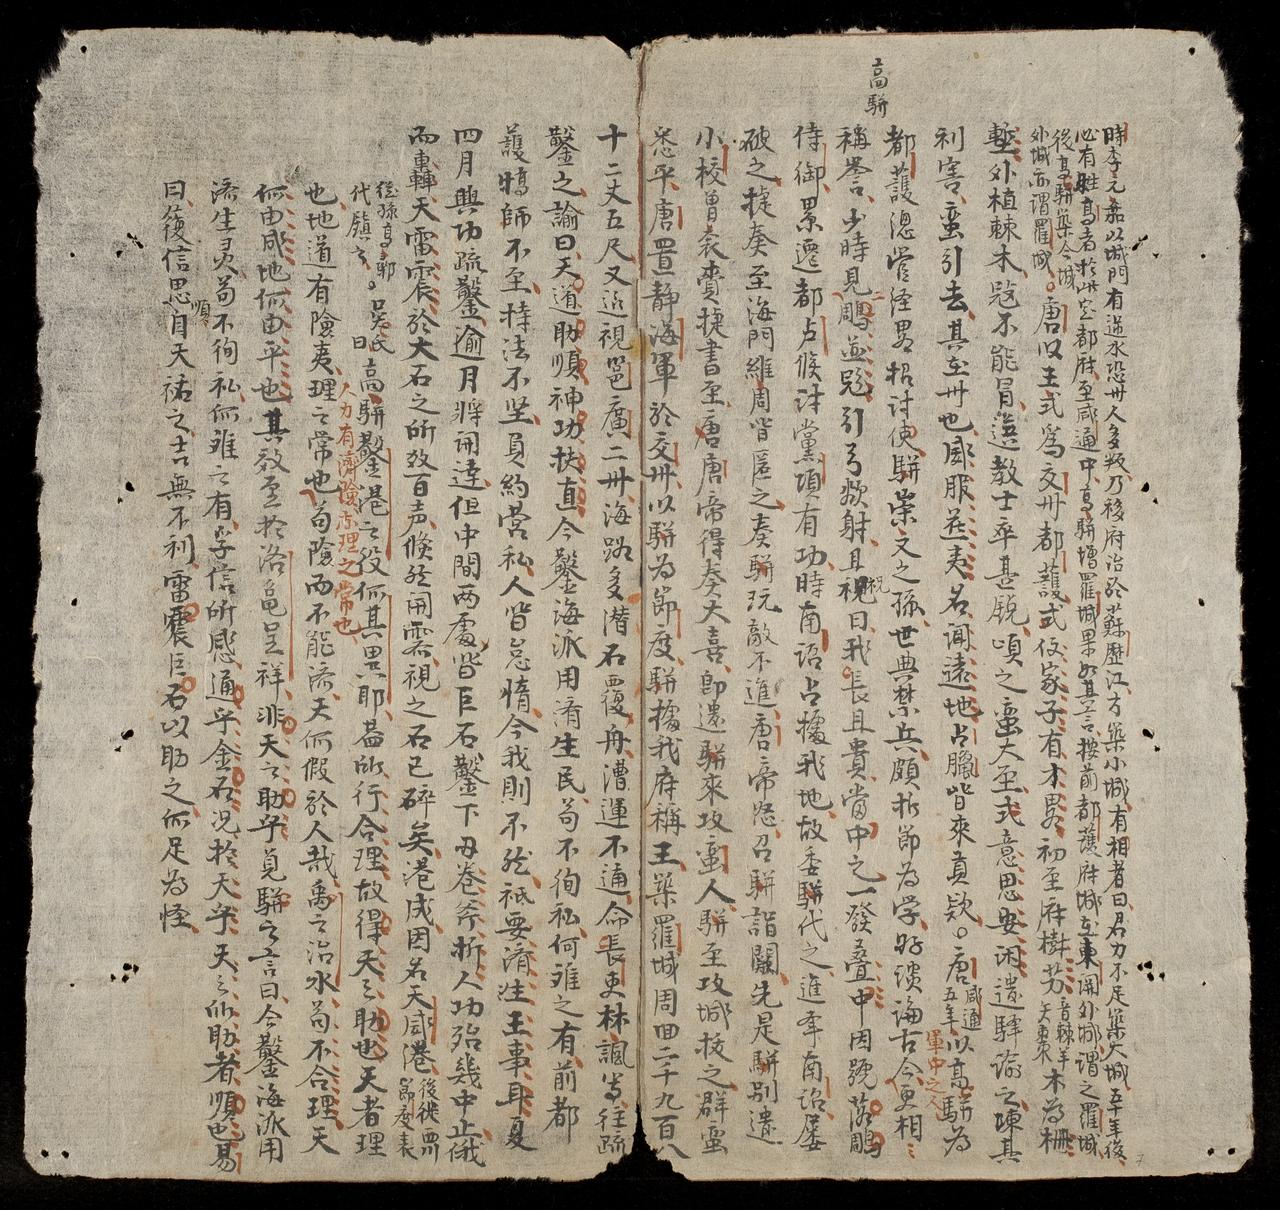 高駢
時李元嘉以城門有逆水恐州人多叛乃移府治於蘇歷江方築小城有相者曰君力不足築大城五十年後
必有姓高者於此定都府至咸通中高駢增羅城果如其言按前都護府城在東關外城謂之羅城
後高駢築今城
外城亦謂羅城。唐以王式爲交州都護式仗家子有才畧初至府樹芀音棘羊矢棗木為柵
塹外植棘木寇不能冒選教士卒甚銳頃之蛮大至式意思安闲遣驛諭之陳其
利害蛮引去其在州也威服茲夷名聞遠地占臘皆來貢欵。唐咸通五年以高駢為
都護總管經畧招討使駢崇文之孫世典禁兵頗折節為学好談論古今軍中之人更相
稱誉少時見二鵰並飛引弓欲射且祝曰我長且貴當中之一發叠中因號落鵰
侍御累遷都虞候討黨項有功時南詔占據我地故委駢代之進率南詔屢
破之捷奏至海門維周皆匿之奏駢玩敵不進唐帝怒召駢詣闕先是駢別遣
小校曾衮賫捷書至唐唐帝得奏大喜即遣駢來攻蛮人駢至攻城拔之群蛮
悉平唐置静海軍於交州以駢為節度駢據我府稱王築羅城周囬二千九百八
十二丈五尺又近視邕廣二州海路多潜石覆舟漕運不通命長吏林諷等往疏
鑿之諭曰天道助順神功扶直今鑿海派用済生民苟不徇私何难之有前都
護犒師不至持法不坚負約营私人皆怠惰今我則不然祗要済生王事耳夏
四月興功疏鑿逾月將開達但中間兩處皆巨石鑿下刃卷斧折人功殆幾中止俄
而轟天雷震於大石之所致百声倏然開霽視之石已碎矣港成因名天威港後徙西川節度表
從孫高鄩代鎮之。吳氏曰高駢鑿港之役何其異耶蓋所行合理故得天之助也天者理
也地道有險夷理之常也人力有濟險亦理之常也苟險而不能済天何假於人哉禹之治水苟不合理天
何由成地何由平也其效至於洛龟呈祥非天之助乎覓駢之言曰今鑿海派用
済生灵苟不徇私何难之有孚信所感通乎金石况於天乎天之所助者順也易
曰履信思順自天祐之吉無不利雷震巨石以助之何足為怪